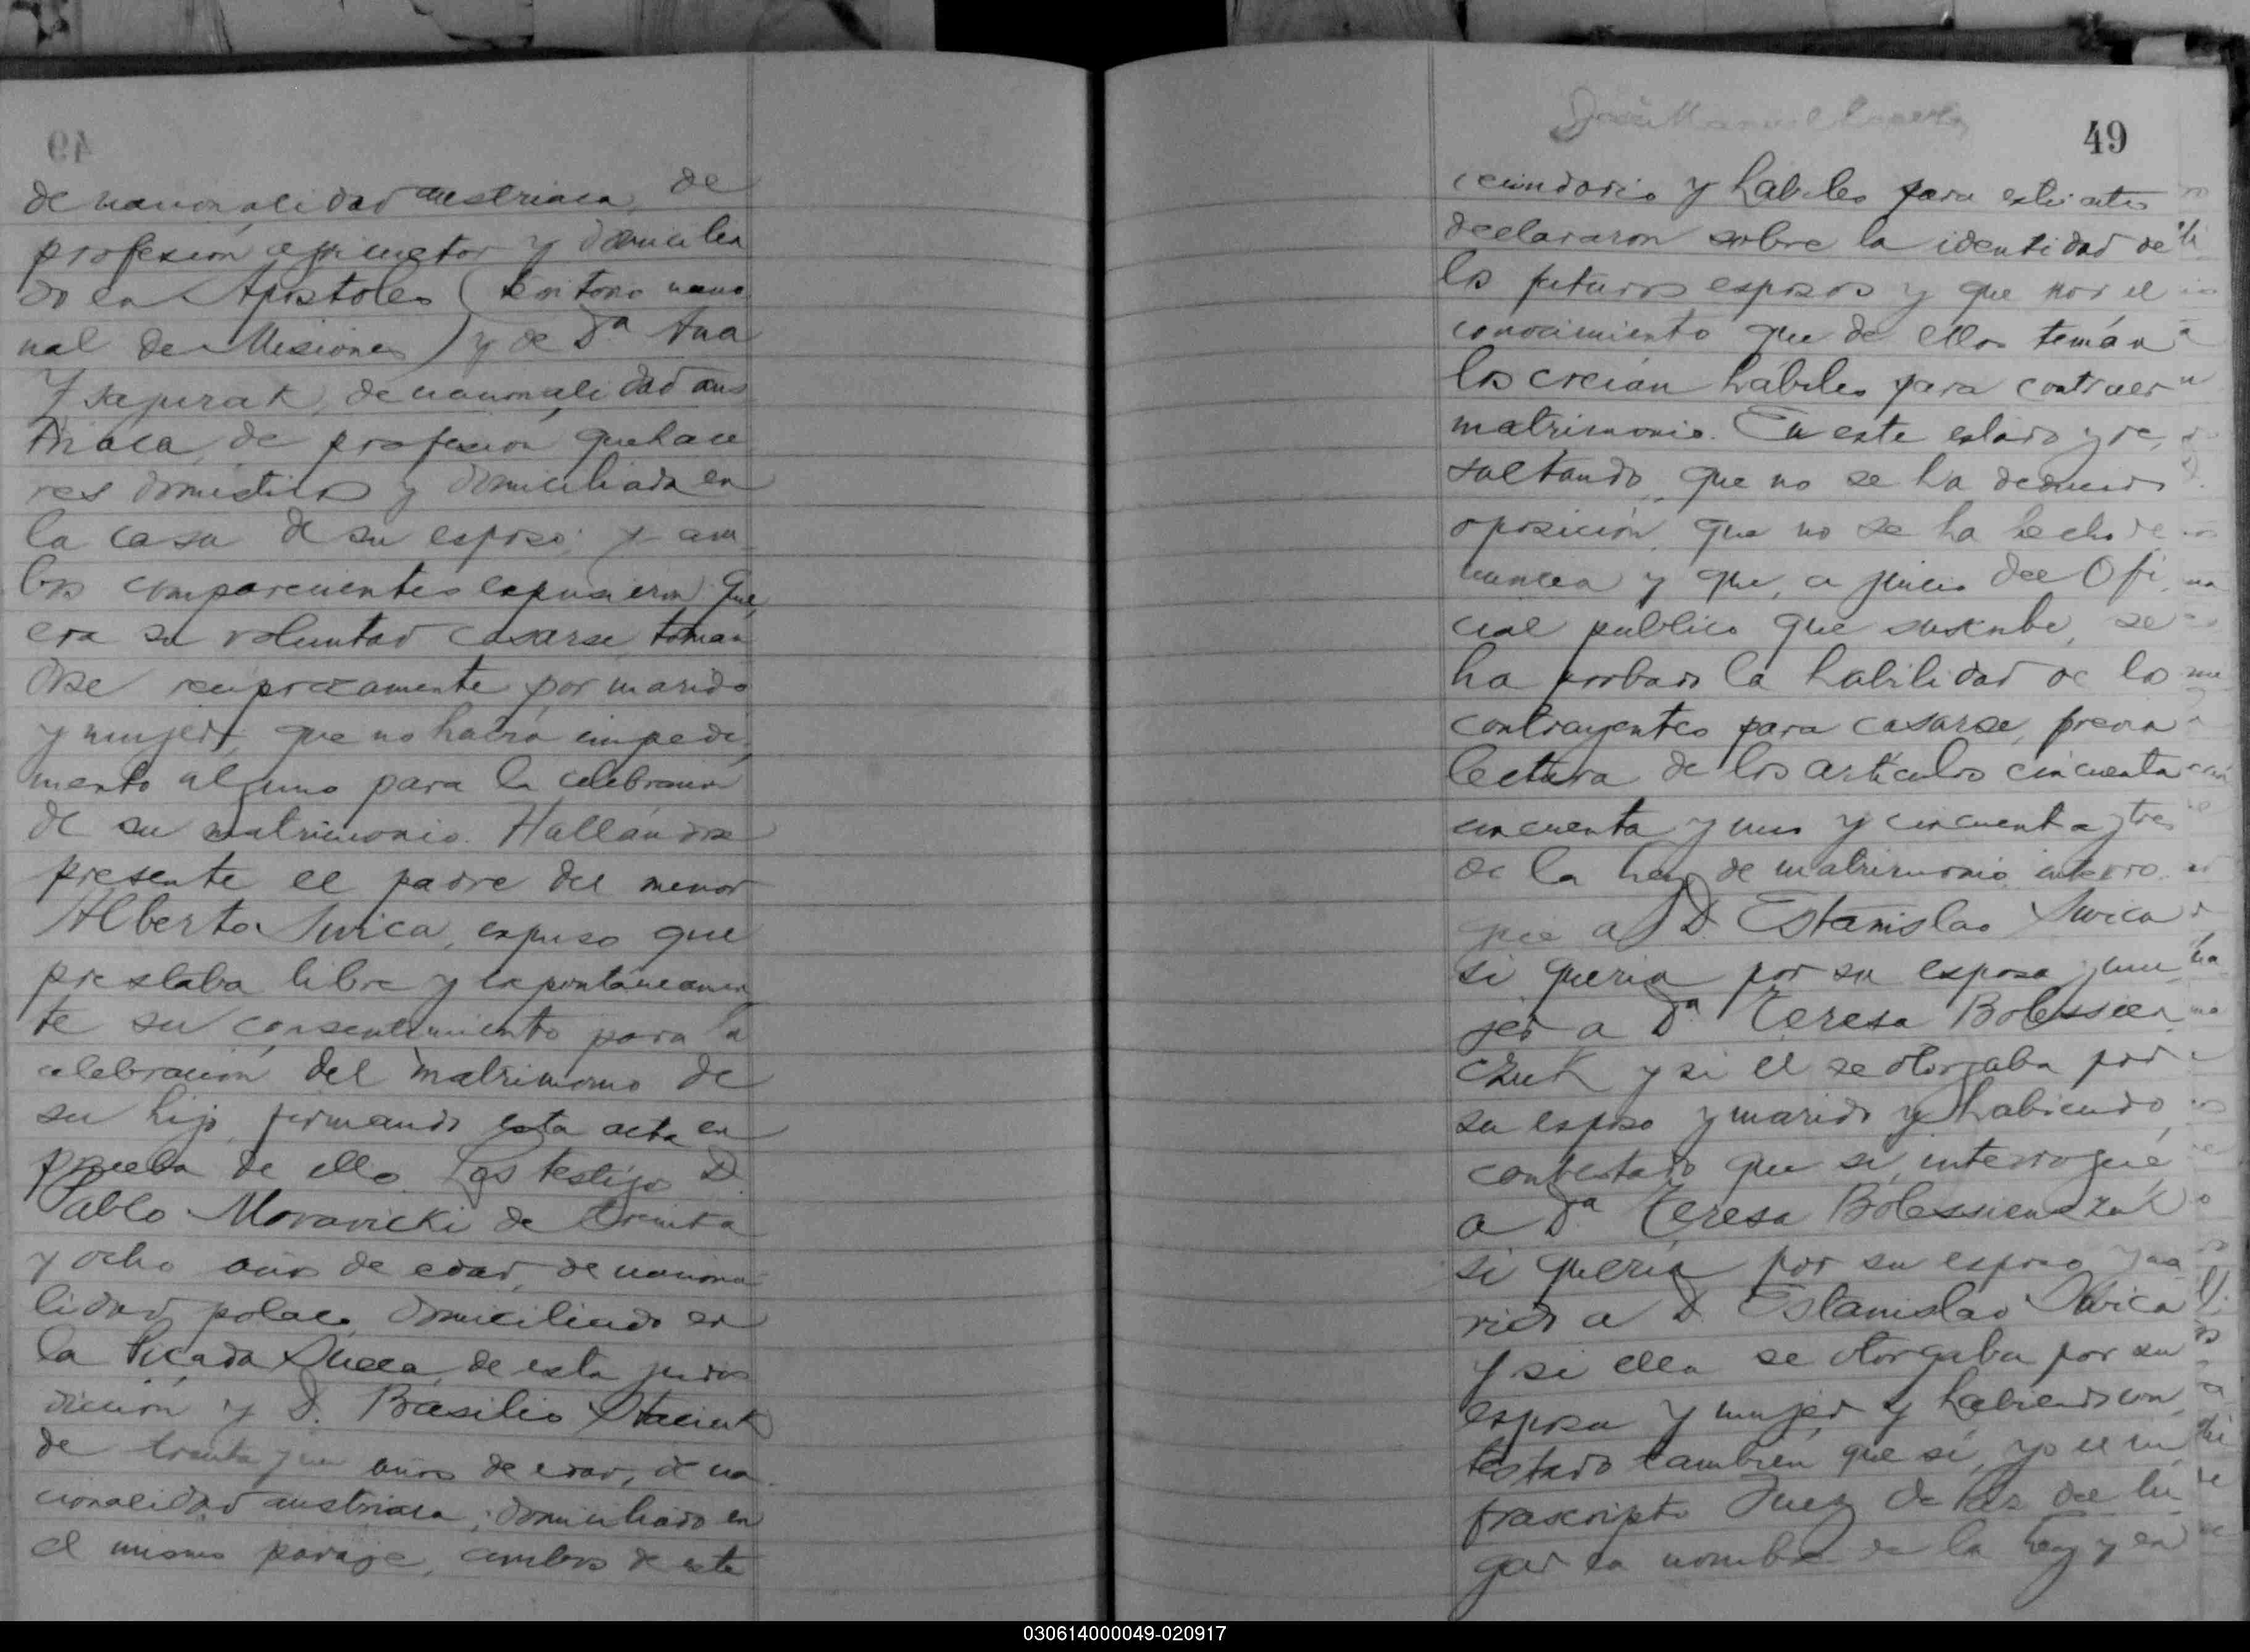 de nacionalidad austriaca, de
profesión agricultor y domicilia
do en Apostoles (territorio nacio
nal de Misiones) y de Dª Ana
de nacionalidad aus
triaca, de profesión quehace
res domésticos y domiciliada en
la casa de su esposo; y am
bos comparecientes expusieron: que
era su voluntad casarse, toman
dose reciprocamente por marido
y mujer, que no había impedi
mento alguno para la celebración
de su matrimonio. Hallándose
presente el padre del menor
Alberto Swica, expuso que
prestaba libre y expontáneamen
te su consentimiento para la
celebración del matrimonio de
su hijo, firmando esta acta en
prueba de ello. Los testigos D.
Pablo Moravicki de treinta
y ocho años de edad, de naciona
lidad polaco, domiciliado en
la Picada Sueca, de esta juris
dicción y D. Basilio
de treinta y un años de edad, de na
cionalidad austriaca, domiciliado en
el mismo paraje, ambos de este
49
José Manuel
vecindario y habiles para este acto
declararon sobre la identidad de
los futuros esposos y que por el
conocimiento que de ellos tenían
los creían hábiles para contraer
matrimonio. En este estado y re
sultando, que no se ha deducido
oposición, que no se ha hecho de
nuncia y que, a juicio del Ofi
cial publico que suscribe, se
ha probado la habilidad de los
contrayentes para casarse, previa
lectura de los artículos cincuenta
cincuenta y uno y cincuenta y tres
de la Ley de matrimonio, interro
gué a D. Estanislao Swica
si queria por su esposa y mu
jer a Dª Teresa Bolessien
czuk y si el se otorgaba por
su esposo y marido y habiendo
contestado que si, interrogué
a Dª Teresa Bolessienczuk
si quería por su esposo y ma
rido a D. Estanislao Swica
y si ella se otorgaba por su
esposa y mujer y habiendo con
testado también que sí, yo el in
frascripto Juez de Paz del lu
gar en nombre de la Ley y en
030614000049-020917